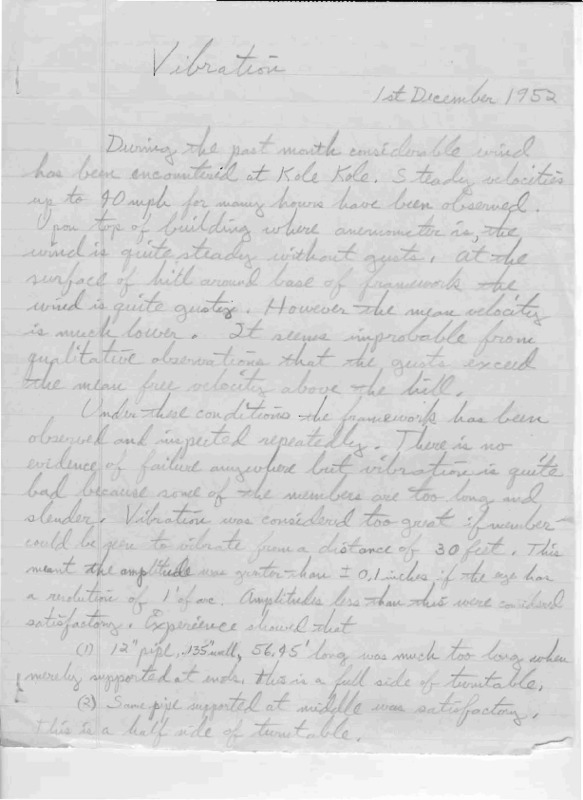 Vibration
1st December 1952
During the past month considerable wind
has been encountered at Kole Kole. Steady velocities
up to 40 mph for many hours have been observed.
Upon top of building where anemometer is, the
wind is quite steady without gusts. At the
surface of hill around base of framework the
wind is quite gusty. However the mean velocity
is much lower. It seems improbable from
qualitative observations that the gusts exceed
the mean free velocity above the hill.
Under these conditions the framework has been
observed and inspected repeatedly. There is no
evidence of failure anywhere but vibration is quite
bad because some of the members are too long and
slender. Vibration was considered too great if member
could be seen to vibrate from a distance of 30 feet. This
meant the amplitude was greater than ± 0.1 inches if the eye has
a resolution of 1' of arc. Amplitudes less than this were considered
satisfactory. Experience showed that
(1) 12" pipe, .135" wall, 56.45' long was much too long when
merely supported at ends. this is a full side of turntable.
(2) Same pipe supported at middle was satisfactory.
this is a half side of turntable.